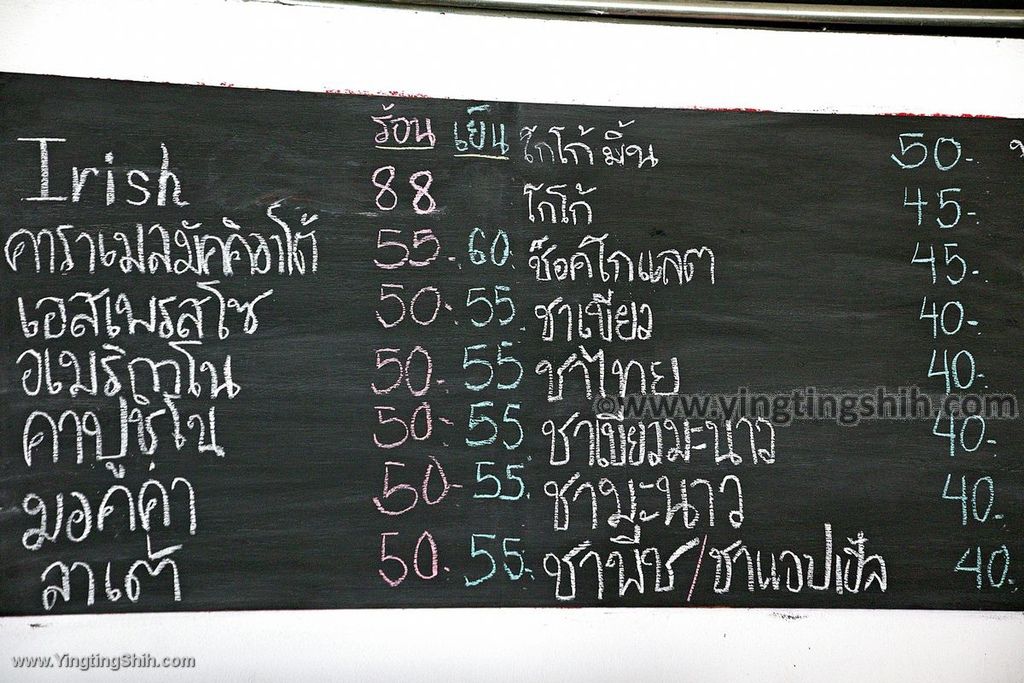 ร้อน เย็น
Irish 88
คาราเมลมัคคิอาโต้ 55. 60.
เอสเพรสโซ 50. 55.
อเมริกาโน 50. 55
คาปูชิโน 50. 55
มอคค่า 50- 55.
ลาเต้ 50. 55.
โกโก้ มิ้น 50.-
โกโก้ 45-
ช็อคโกแลต 45.-
ชาเขียว 40.-
ชาไทย 40.-
ชาเขียวมะนาว 40.-
ชามะนาว 40.-
ชาพีช/ชาแอปเปิ้ล 40.
©www.yingtingshih.com
www.YingtingShih.com